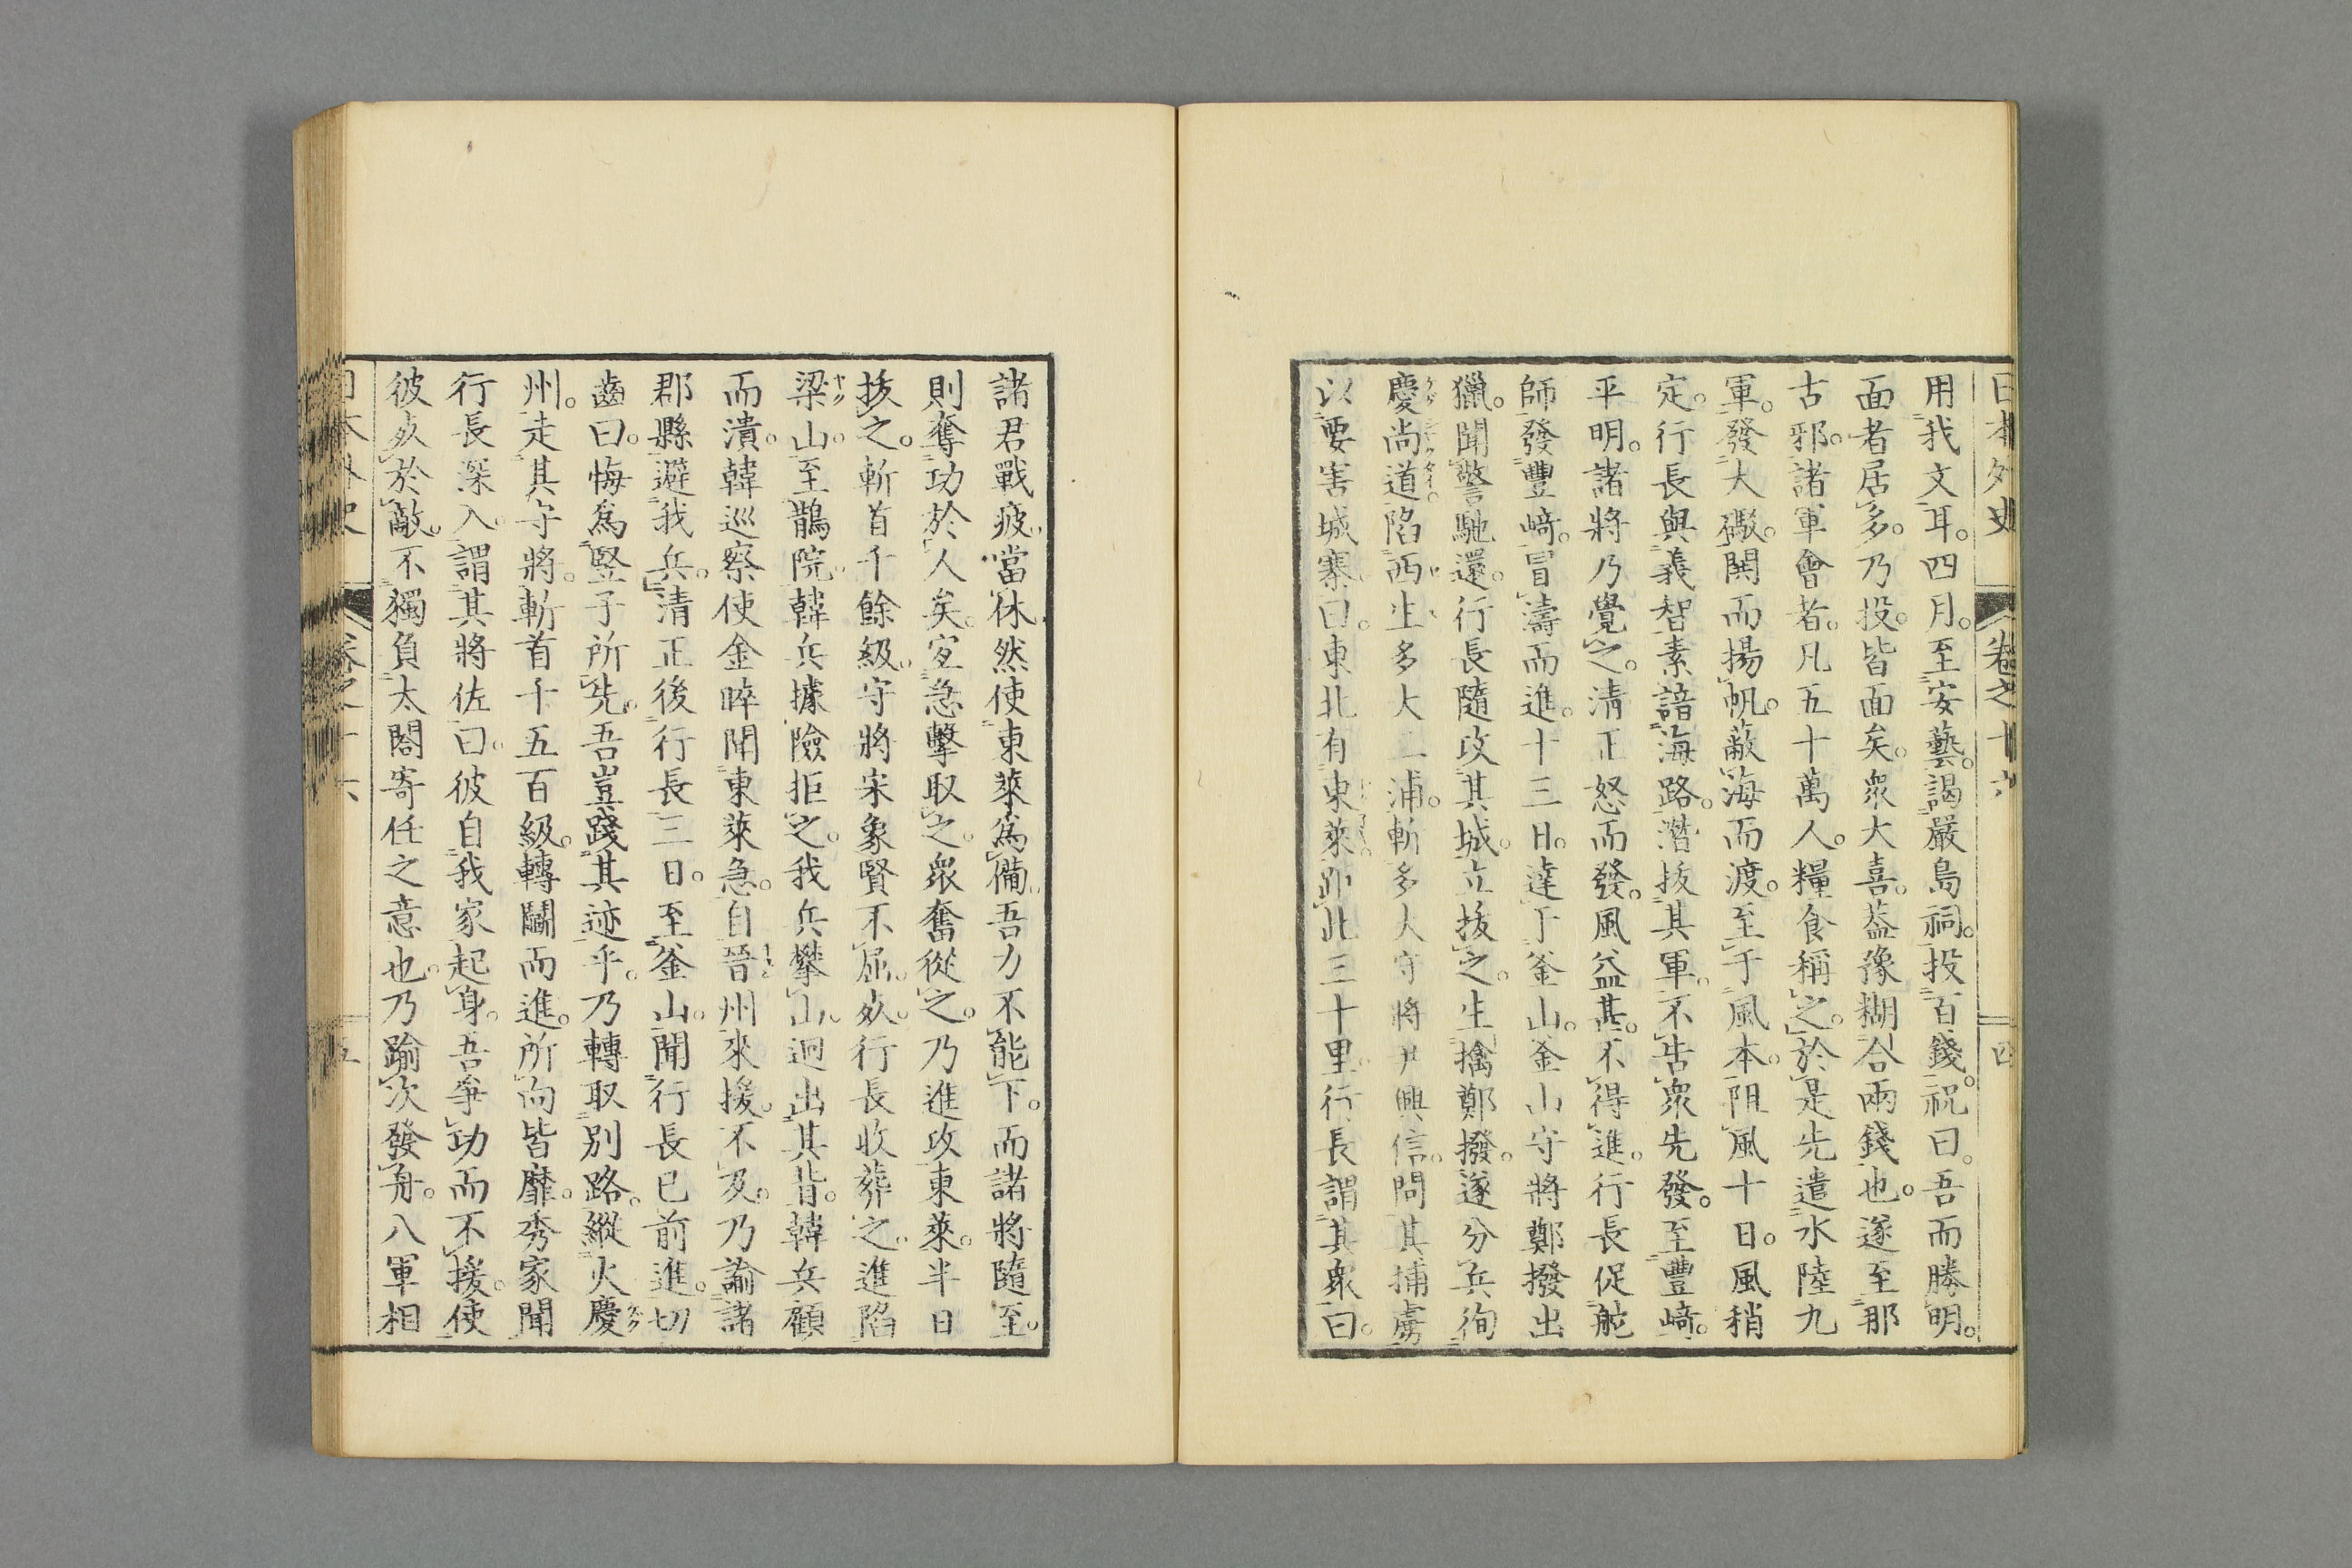 日本外史 卷之十六 四
用我文耳。四月。至安藝。謁嚴島祠。投百錢。祝曰。吾而勝明。
面者居多。乃投。皆面矣。衆大喜。葢豫糊合兩錢也。遂至那
古邪。諸軍會者。凡五十萬人。糧食稱之。於是先遣水陸九
軍。發大礮。鬨而揚帆。蔽海而渡。至于風本。阻風十日。風稍
定。行長與義智素諳海路。潛拔其軍。不告衆先發。至豐﨑。
平明。諸將乃覺之。淸正怒而發。風益甚。不得進。行長促舵
師發豐﨑。冒濤而進。十三日。達于釜山。釜山守將鄭撥出
獵。聞警馳還。行長隨攻其城。立拔之。生擒鄭撥。遂分兵徇
慶尚道。陷西生多大二浦。斬多大守將尹興信。問其捕虜
以要害城寨。曰。東北有東萊。距此三十里。行長謂其衆曰。
諸君戰疲。當休然使東萊爲備。吾力不能下。而諸將隨至。
則奪功於人矣。宜急擊取之。衆奮從之。乃進攻東萊。半日
拔之。斬首千餘級。守將宋象賢不屈。死。行長收葬之。進陷
梁山。至鵲院。韓兵據險拒之。我兵攀山。迥出其背。韓兵顧
而潰。韓巡察使金睟聞東萊急。自晉州來援。不及。乃諭諸
郡縣避我兵。清正後行長三日。至釜山。聞行長已前進。切
齒曰。悔爲豎子所先。吾豈踐其迹乎。乃轉取別路。縱火慶
州。走其守將。斬首千五百級。轉鬭而進。所向皆靡。秀家聞
行長深入。謂其將佐曰。彼自我家起身。吾爭功而不援。使
彼死於敵。不獨負太閤寄任之意也。乃踰次發舟。八軍相
日本外史 卷之十六 五